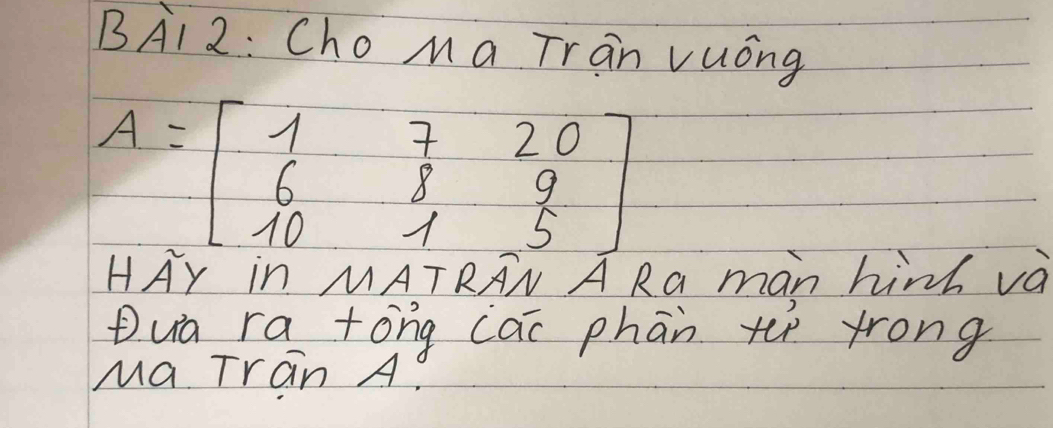 BÀI 2: Cho Ma Trận vuông
A = [ 1 7 20
6 8 9
10 1 5 ]
HÃY in MA TRẬN A Ra màn hình và
Đưa ra tổng các phần tử trong
Ma Trận A.